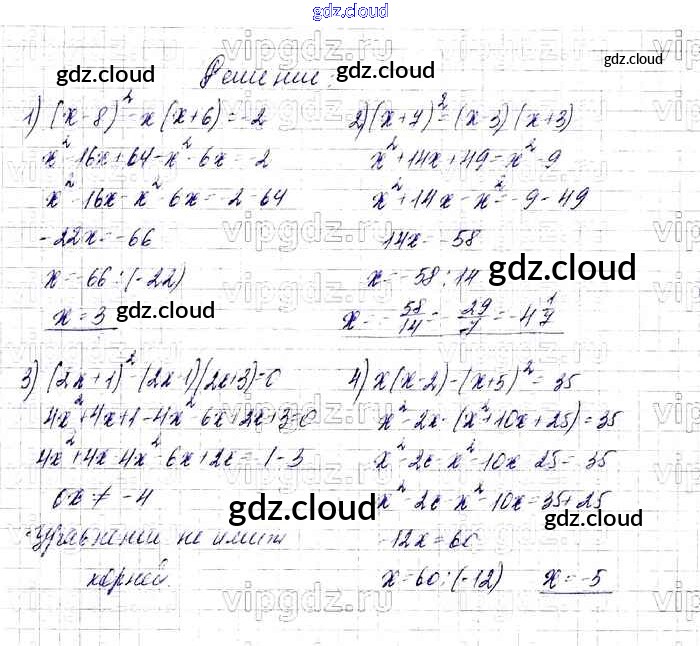 gdz.cloud
Решение:
1) (x-8)² - x(x+6) = -2
x² - 16x + 64 - x² - 6x = -2
x² - 16x - x² - 6x = -2 - 64
-22x = -66
x = -66 : (-22)
x = 3
2) (x+7)² = (x-3)(x+3)
x² + 14x + 49 = x² - 9
x² + 14x - x² = -9 - 49
14x = -58
x = -58 : 14
x = -58/14 = -29/7 = -4 1/7
3) (2x+1)² - (2x-1)(2x+3) = 0
4x² + 4x + 1 - 4x² - 6x + 2x + 3 = 0
4x² + 4x - 4x² - 6x + 2x = -1 - 3
0x ≠ -4
Уравнение не имеет
корней.
4) x(x-2) - (x+5)² = 35
x² - 2x - (x² + 10x + 25) = 35
x² - 2x - x² - 10x - 25 = 35
x² - 2x - x² - 10x = 35 + 25
-12x = 60
x = 60 : (-12) x = -5
gdz.cloud
gdz.cloud
gdz.cloud
gdz.cloud
gdz.cloud
gdz.cloud
gdz.cloud
vipgdz.ru